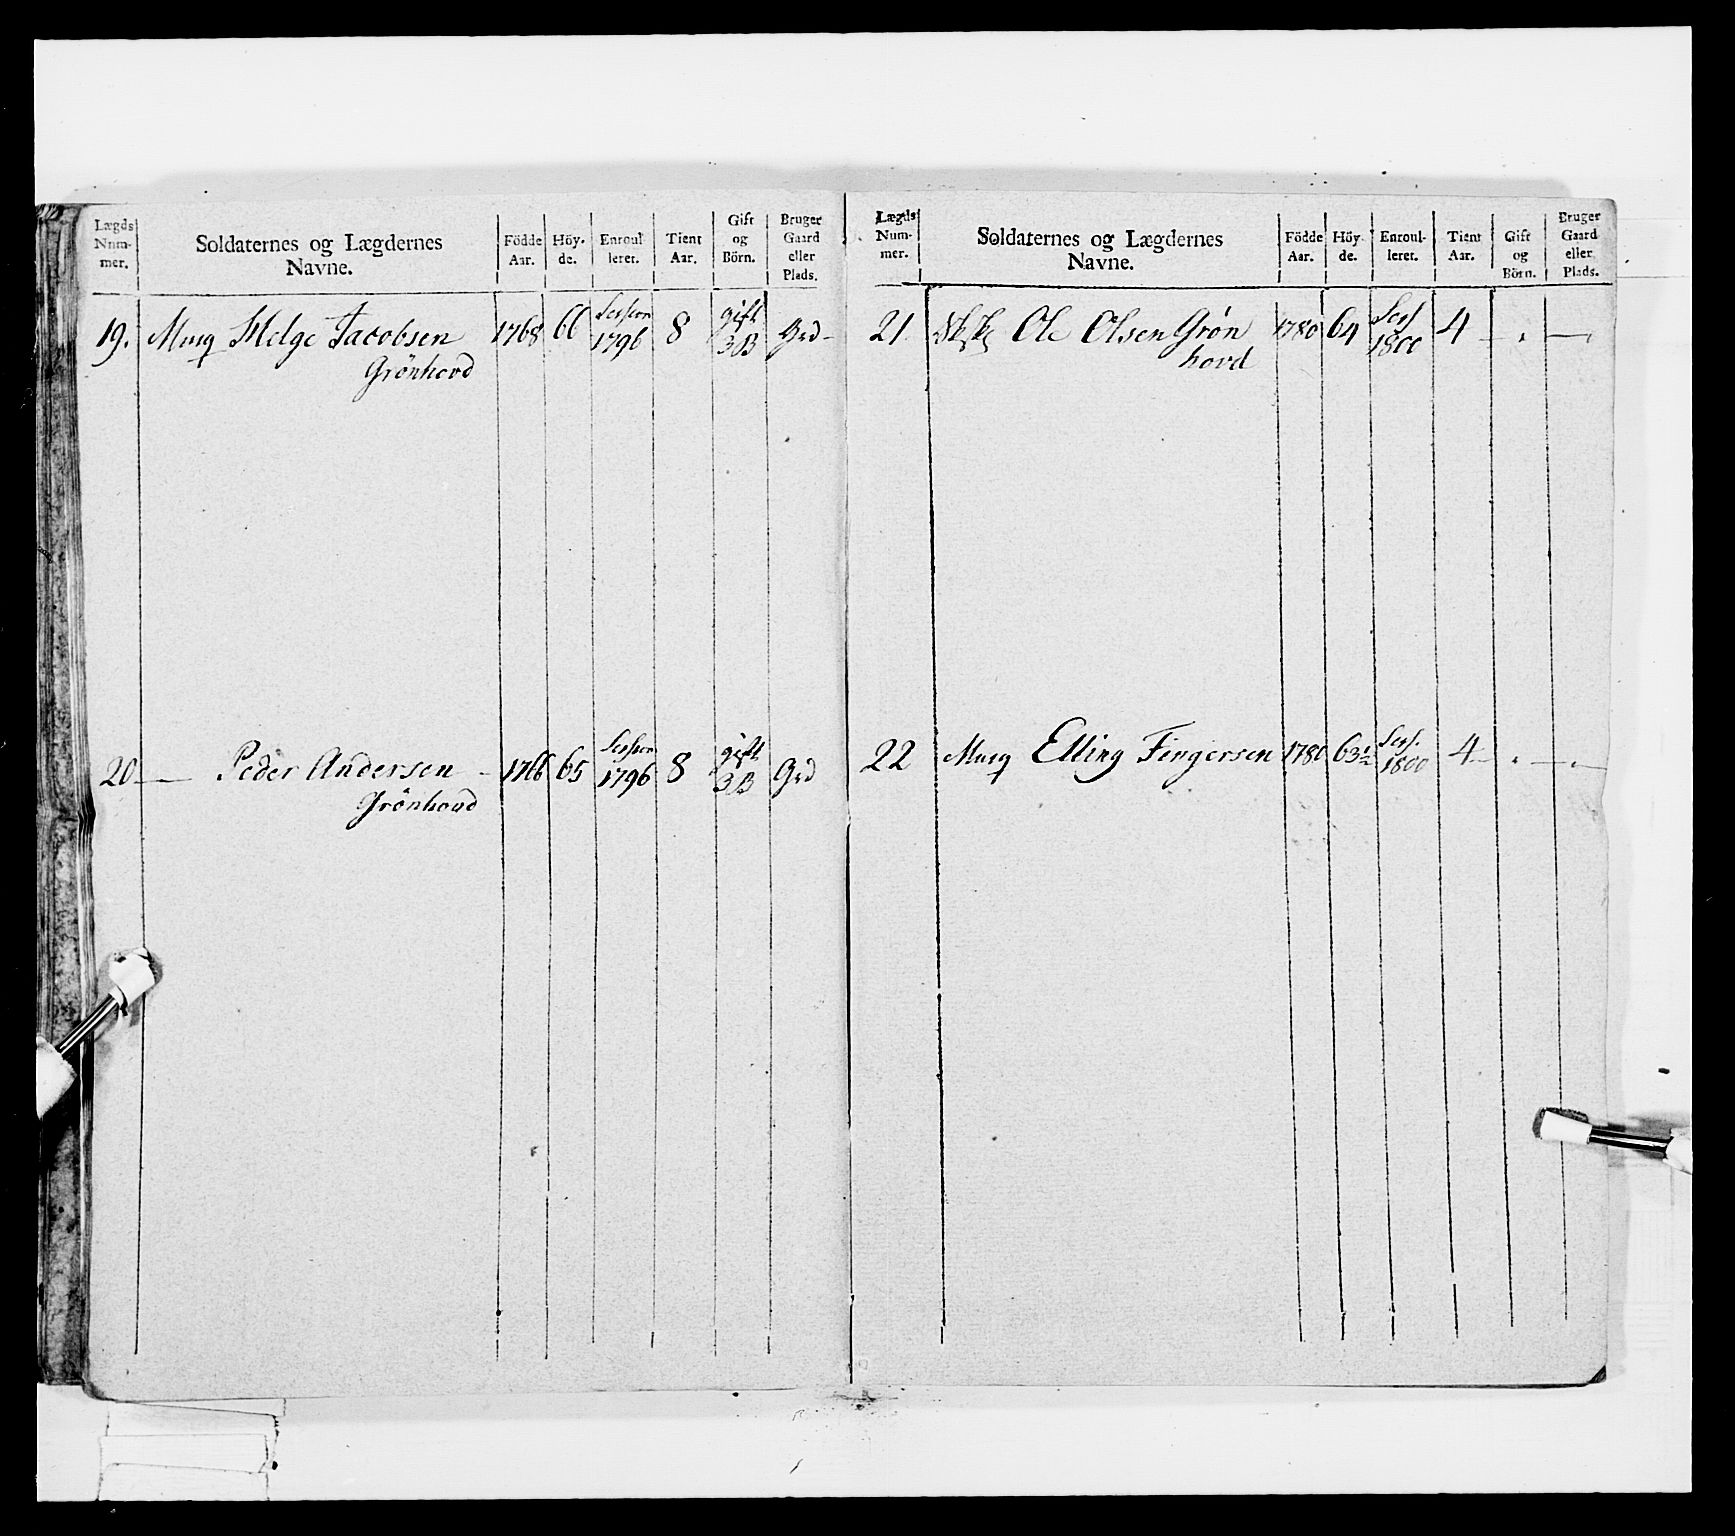 Lægds Num- mer.
Soldaternes og Lægdernes Navne.
Födde Aar.
Höy- de.
Enroul leret.
Tient Aar.
Gift og Börn.
Bruger Gaard eller Plads.
19. Musq Helge Jacobsen 1768 66 Session 1796 8 gift 3B Grd -
Grönhovd
20 — Peder Andersen - 1766 65 Session 1796 8 gift 3B Grd
Grönhovd
Lægds Num- mer.
Soldaternes og Lægdernes Navne.
Födde Aar.
Höy- de.
Enroul- leret.
Tient Aar.
Gift og Börn.
Bruger Gaard eller Plads.
21. Ole Olsen Grøn 1780 64 Sess. 1800 4 — . —
hovd
22 Musq Elling Fingersen 1780 63½ Sess. 1800 4 — . — . —